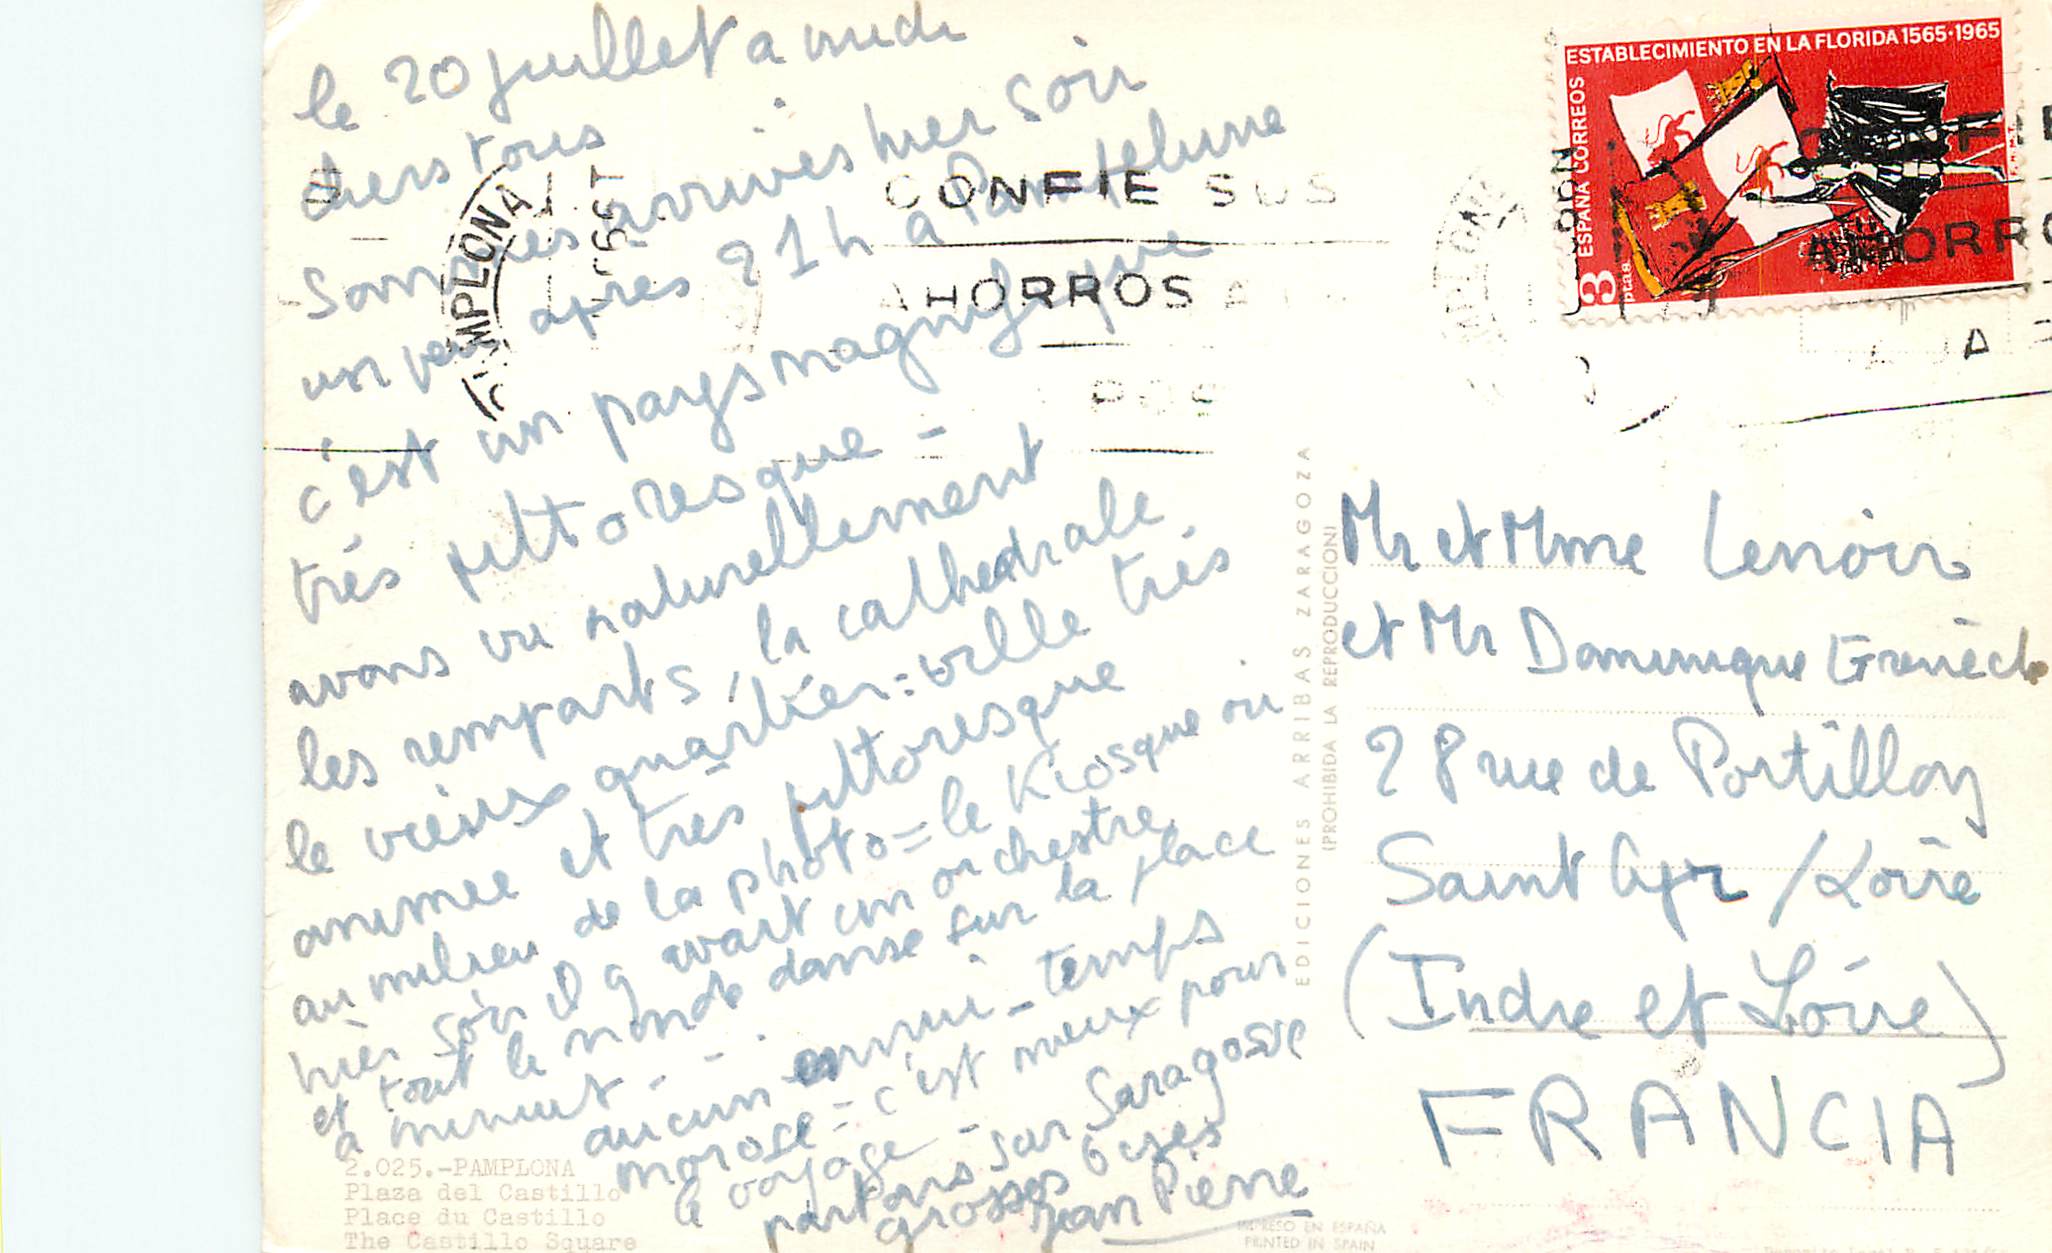 le 20 juillet a midi
chers tous
Sommes arrivés hier soir
un peu après 21h à Pampelune
c'est un pays magnifique
très pittoresque =
avons vu naturellement
les remparts, la cathedrale,
le vieux quartier = ville très
animée et très pittoresque
au milieu de la photo = le Kiosque où
hier soir il y avait un orchestre,
et tout le monde danse sur la place
à minuit - - .
aucun ennui - temps
morose = c'est mieux pour
le voyage -
partons sur Saragosse
grosses bises
Jean Pierre
2.025.-PAMPLONA
Plaza del Castillo
Place du Castillo
The Castillo Square
EDICIONES ARRIBAS ZARAGOZA
(PROHIBIDA LA REPRODUCCION)
IMPRESO EN ESPAÑA
PRINTED IN SPAIN
PAMPLONA
CONFIE SUS
AHORROS
ESTABLECIMIENTO EN LA FLORIDA 1565·1965
ESPAÑA CORREOS
3 ptas.
Mr et Mme Lenoir
et Mr Dominique Grenèche
28 rue de Portillon
Saint Cyr /Loire
(Indre et Loire)
FRANCIA